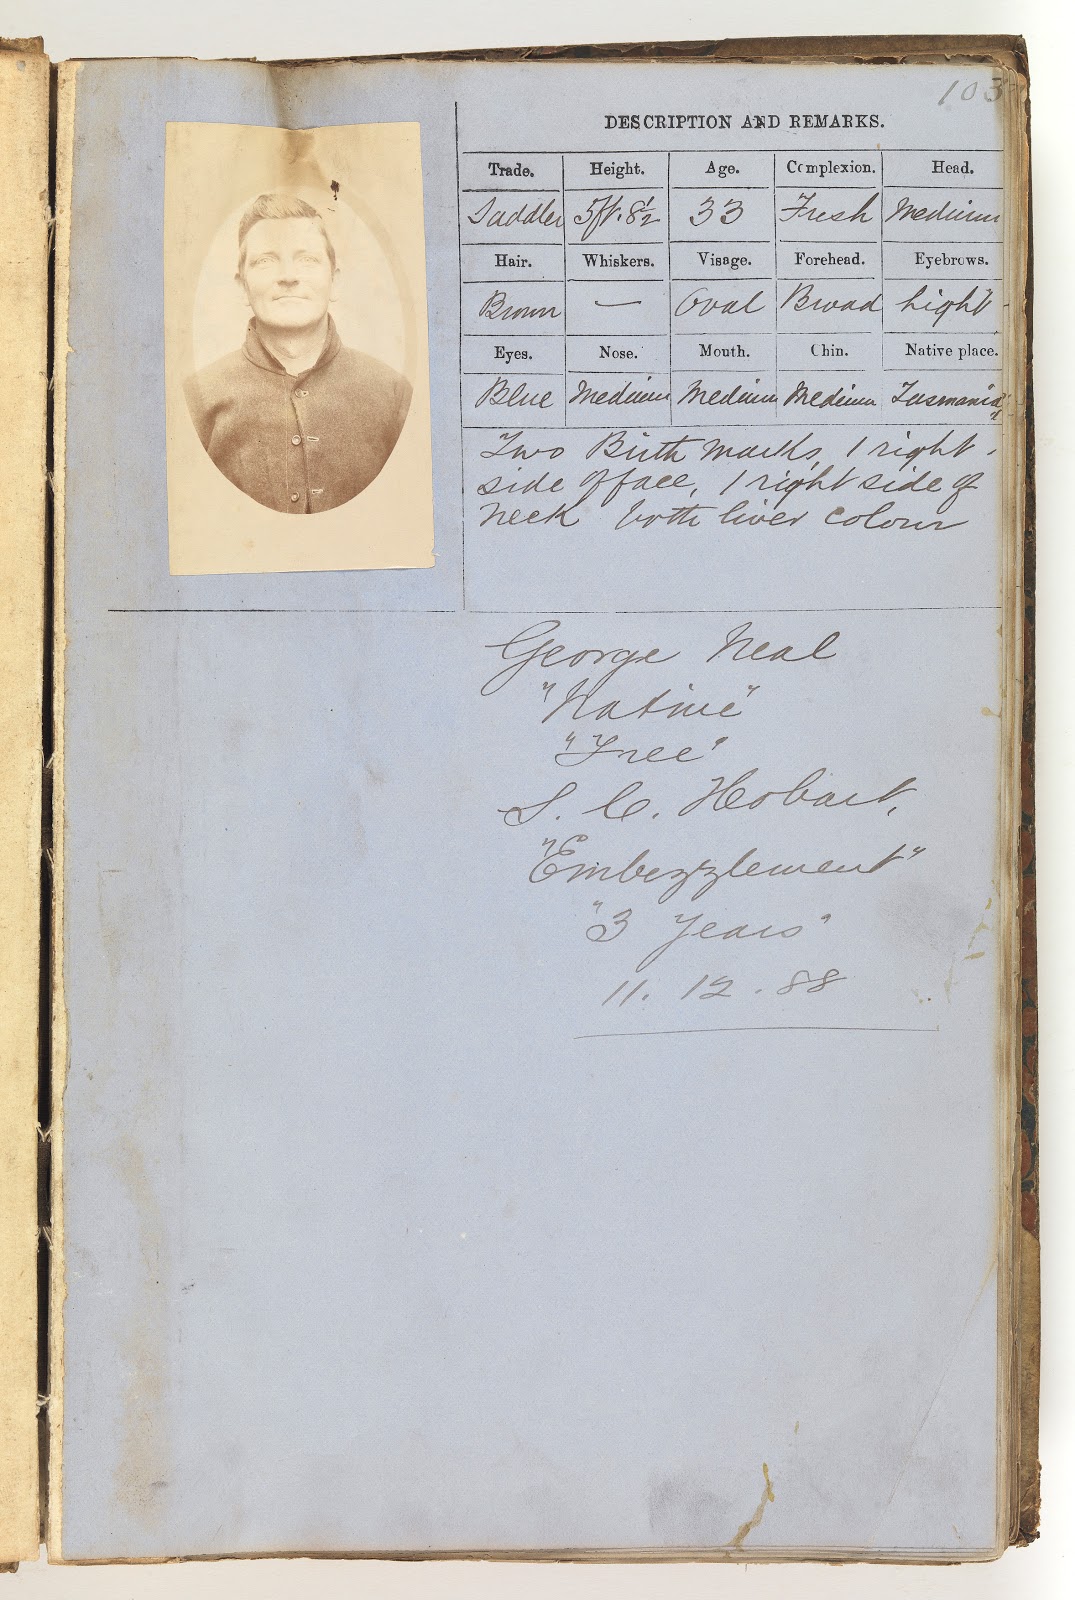 103
DESCRIPTION AND REMARKS.
Trade. Height. Age. Complexion. Head.
Saddler 5ft. 8½ 33 Fresh Medium
Hair. Whiskers. Visage. Forehead. Eyebrows.
Brown — Oval Broad Light
Eyes. Nose. Mouth. Chin. Native place.
Blue Medium Medium Medium Tasmania
Two Birth marks, 1 right
side of face, 1 right side of
neck both liver colour
George Neal
"Native"
"Free"
S. C. Hobart,
"Embezzlement"
"3 Years"
11. 12. 88